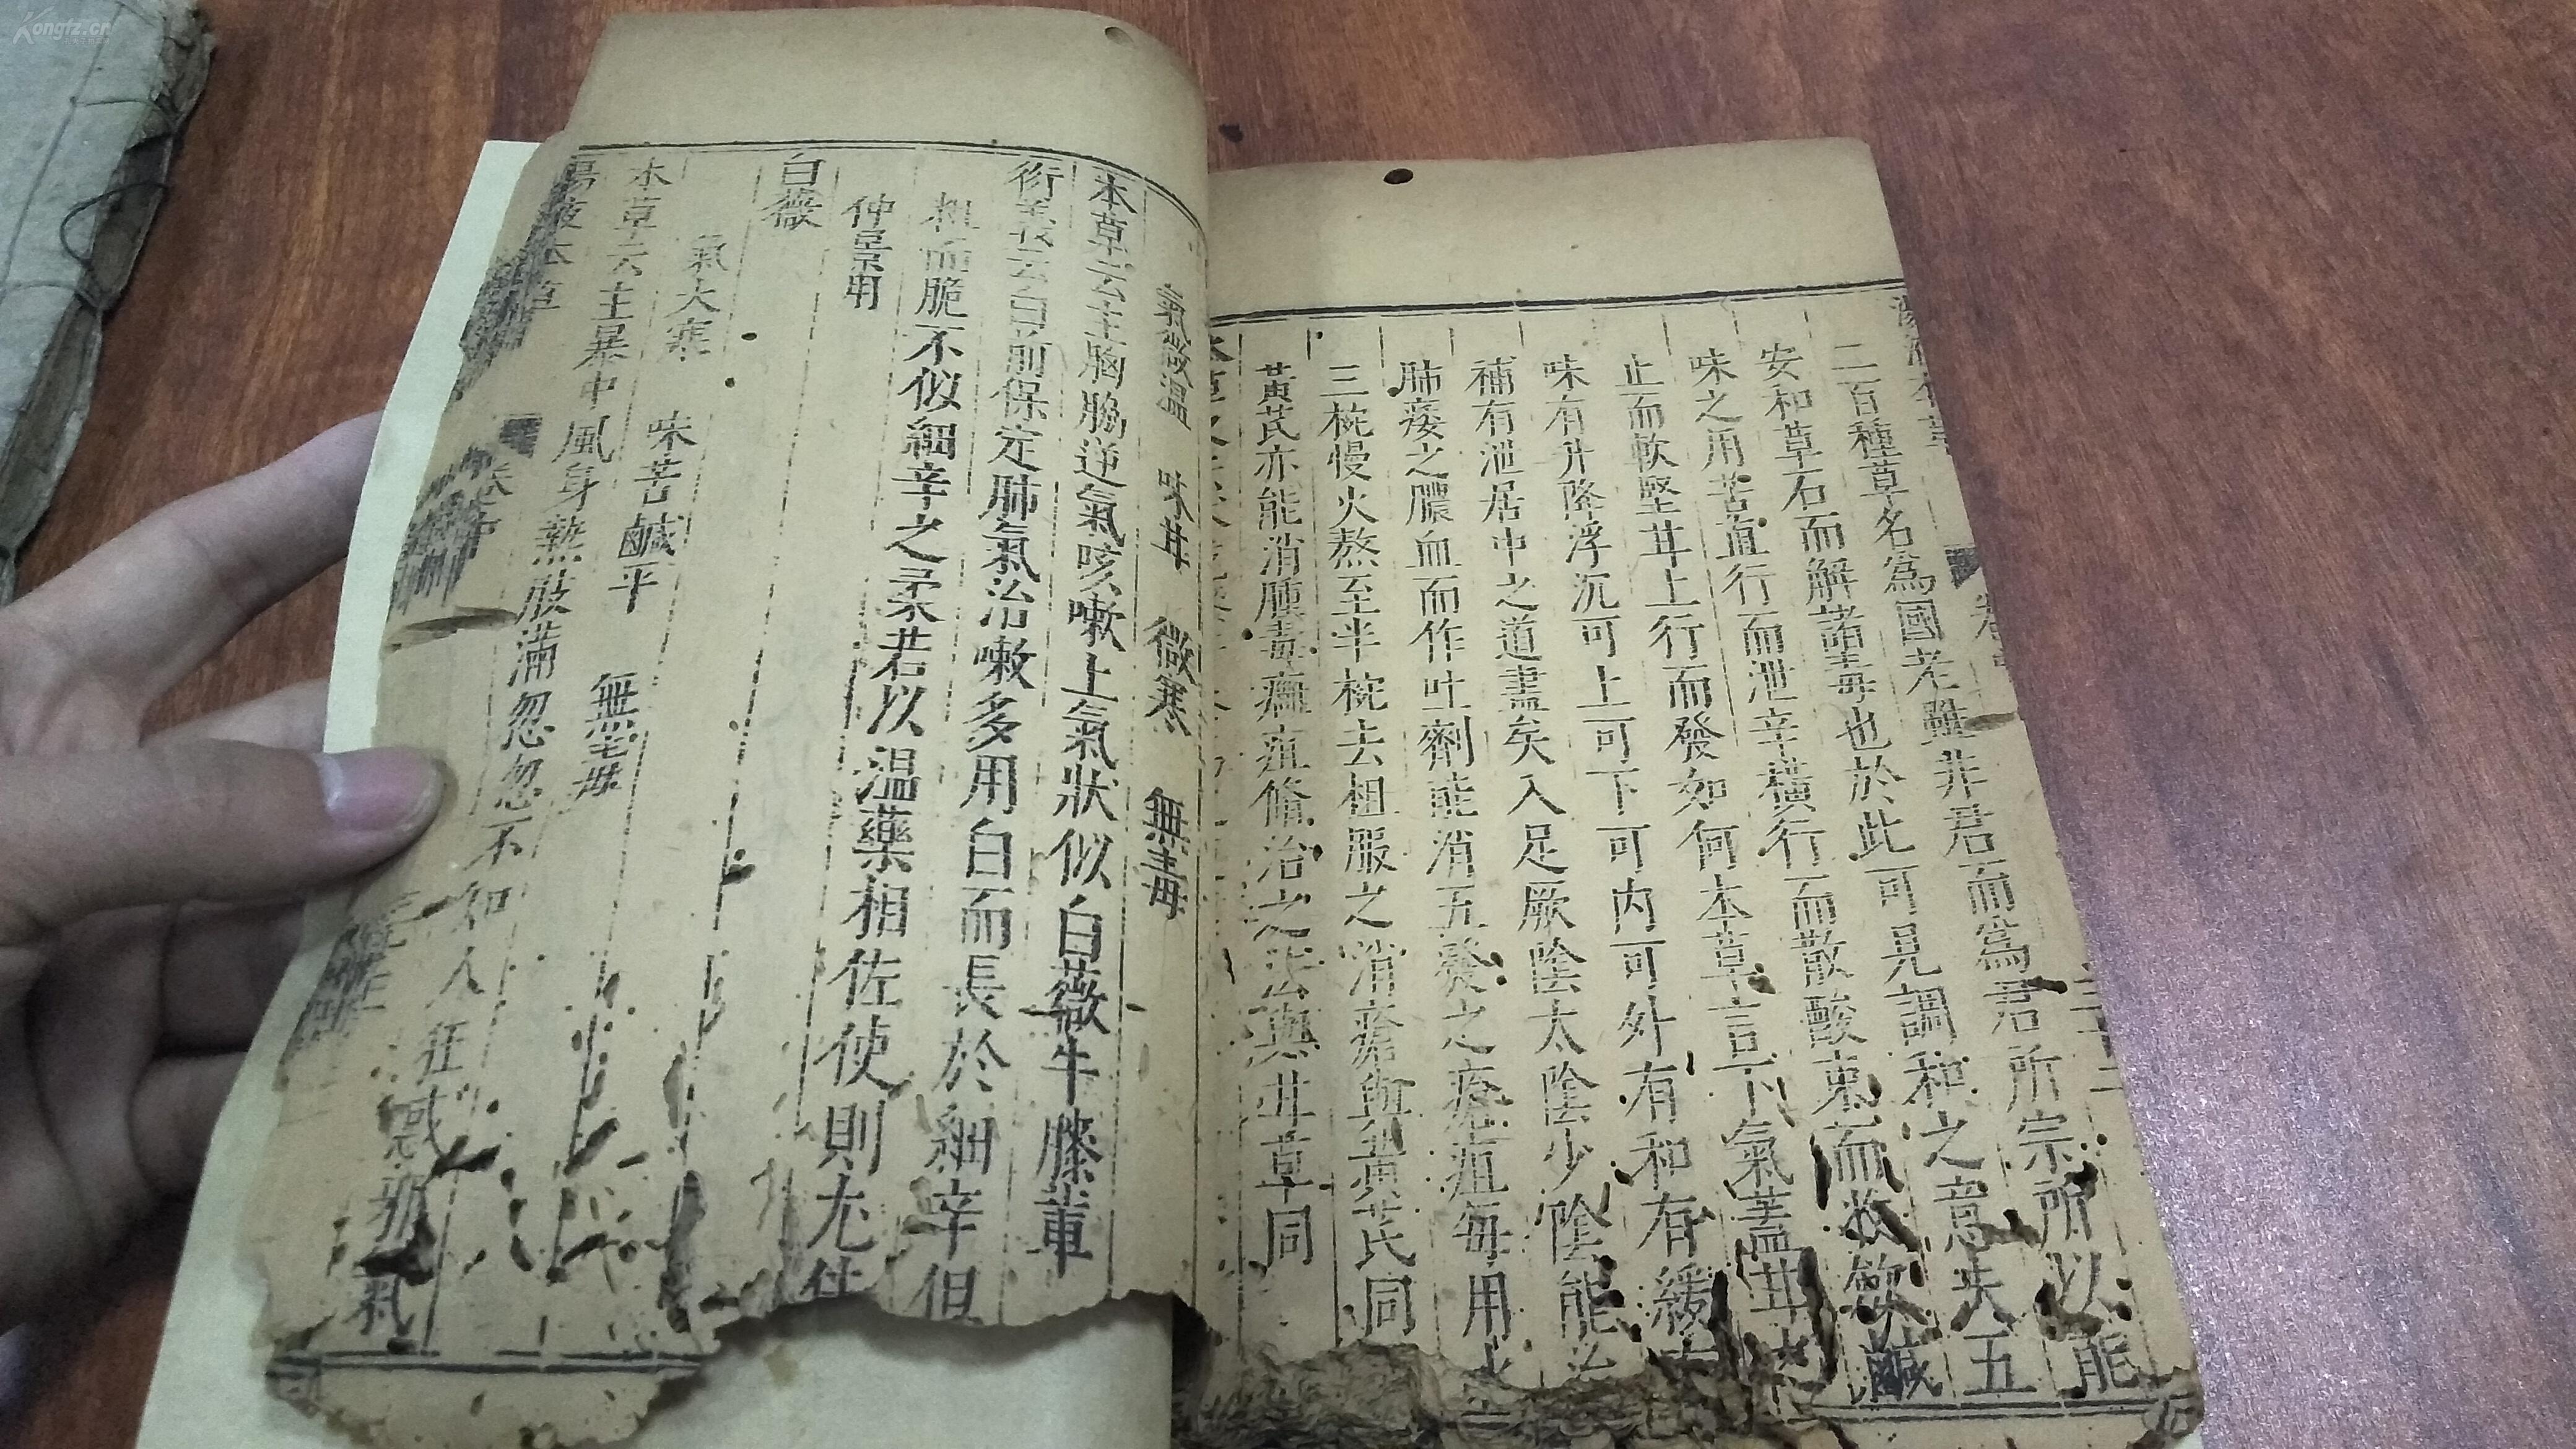 Kongfz.cn
二百種草名爲國老雖非君而爲君所宗所以能
安和草石而解諸毒也於此可見調和之意夫五
味之用苦直行而泄辛橫行而散酸束而收斂鹹
止而軟堅甘上行而發如何本草言下氣蓋甘
味有升降浮沉可上可下可内可外有和有緩有
補有泄居中之道盡矣入足厥陰太陰少陰能治
肺痿之膿血而作吐劑能消五發之瘡疽每用水
三椀慢火熬至半椀去柤服之消瘡與黃芪同
黃芪亦能消腫毒癰疽脩治之法與甘草同
氣微温 味甘 微寒 無毒
本草云主胸脇逆氣咳嗽上氣狀似白薇牛膝輩
衍義云白前保定肺氣治嗽多用白而長於細辛但
粗而脆不似細辛之柔若以温藥相佐使則尤佳
仲景用
白薇
氣大寒 味苦鹹平 無毒
本草云主暴中風身熱肢滿忽忽不知人狂惑邪氣
湯液本草 卷中